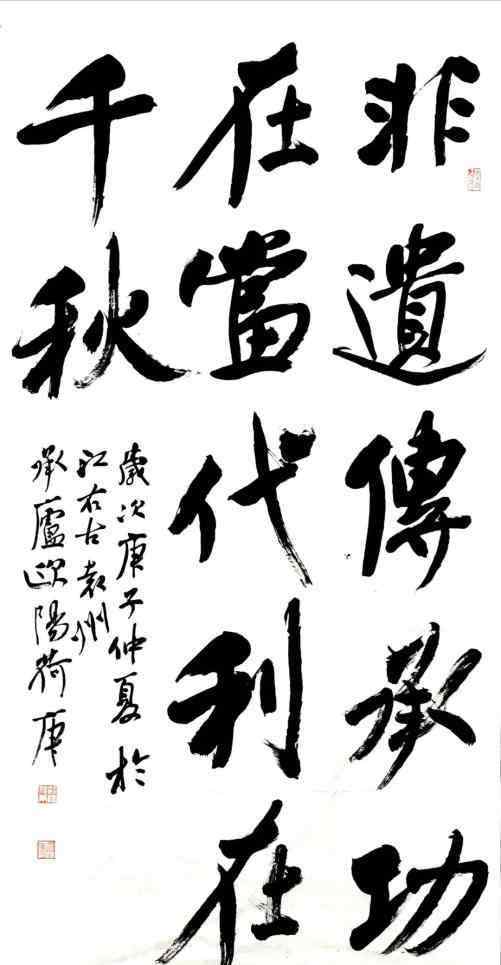 非遺傳承功
在當代利在
千秋
歲次庚子仲夏於
江右古袁州
承廬歐陽荷庚